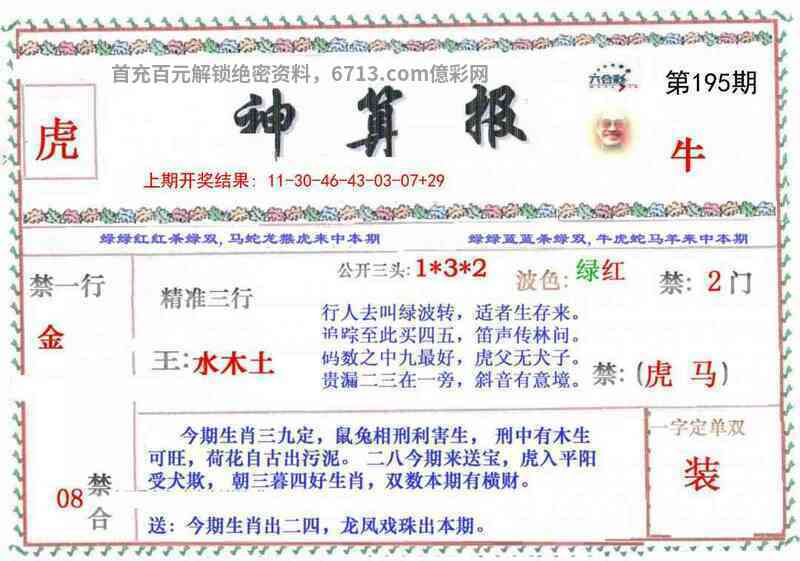 首充百元解锁绝密资料，6713.com億彩网
六合彩
第195期
虎
神算报
牛
上期开奖结果：11-30-46-43-03-07+29
绿绿红红杀绿双，马蛇龙猴虎来中本期
绿绿蓝蓝杀绿双，牛虎蛇马羊来中本期
禁一行
金
精准三行
王：水木土
公开三头：1*3*2
波色：绿红
禁：2门
行人去叫绿波转，适者生存来。
追踪至此买四五，笛声传林间。
码数之中九最好，虎父无犬子。
贵漏二三在一旁，斜音有意境。
禁：(虎 马)
08
禁合
今期生肖三九定，鼠兔相刑利害生， 刑中有木生
可旺，荷花自古出污泥。 二八今期来送宝，虎入平阳
受犬欺， 朝三暮四好生肖，双数本期有横财。
送：今期生肖出二四，龙凤戏珠出本期。
一字定单双
装